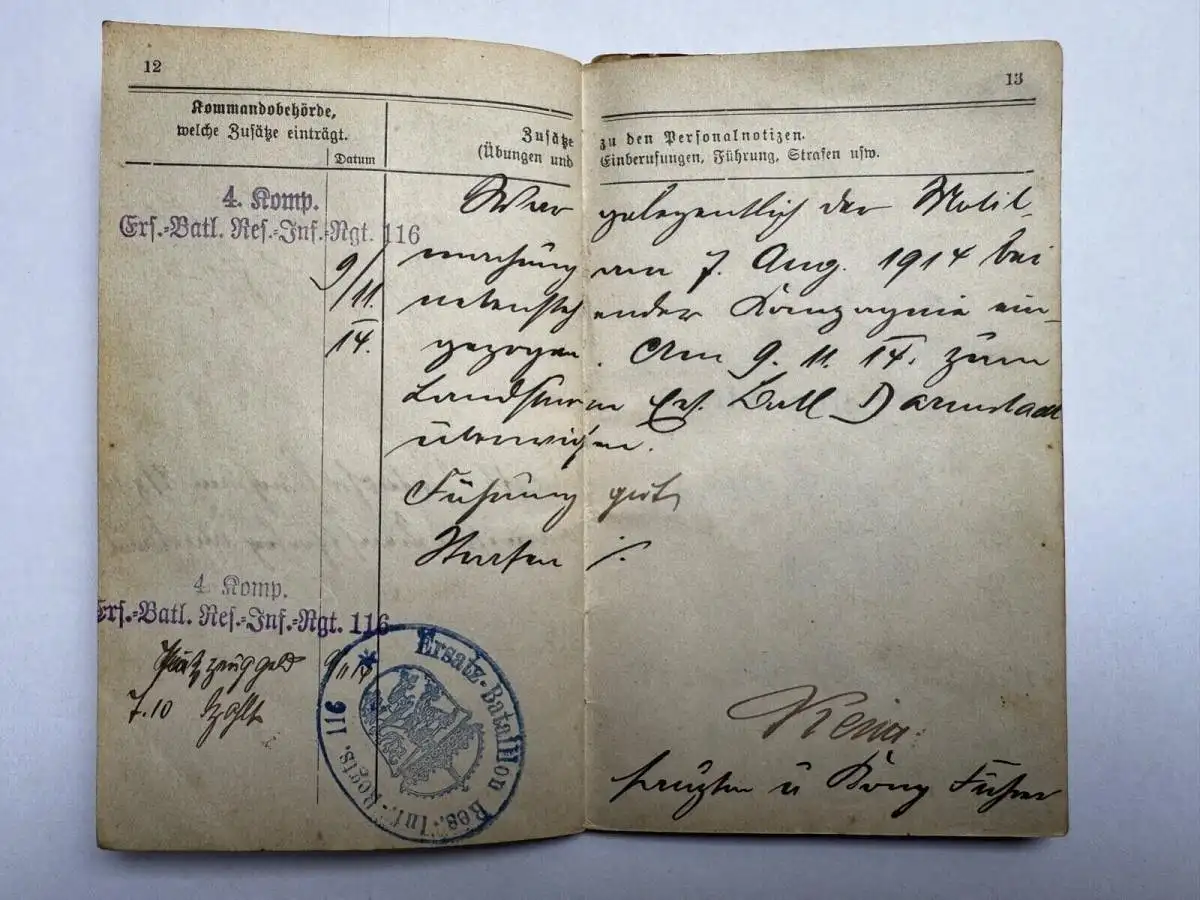 12
Kommandobehörde,
welche Zusätze einträgt.
Datum
Zusätze
(Übungen und
4. Komp.
Ers.-Batl. Res.-Inf.-Rgt. 116
9/
11.
14.
13
zu den Personalnotizen.
Einberufungen, Führung, Strafen usw.
War gelegentlich der Mobil-
machung am 7. Aug. 1914 bei
nebensteh ender Kompagnie ein-
gezogen. Am 9. 11. 14. zum
Landsturm Ers. Batl Darmstadt
überwiesen.
Führung gut,
Strafen ./.
4. Komp.
Ers.-Batl. Res.-Inf.-Rgt. 116
Putzzeuggeld 9.11.14
7.10
Ersatz-Bataillon Res.-Inf.-Regts. 116
Hauptm u Komp Führer